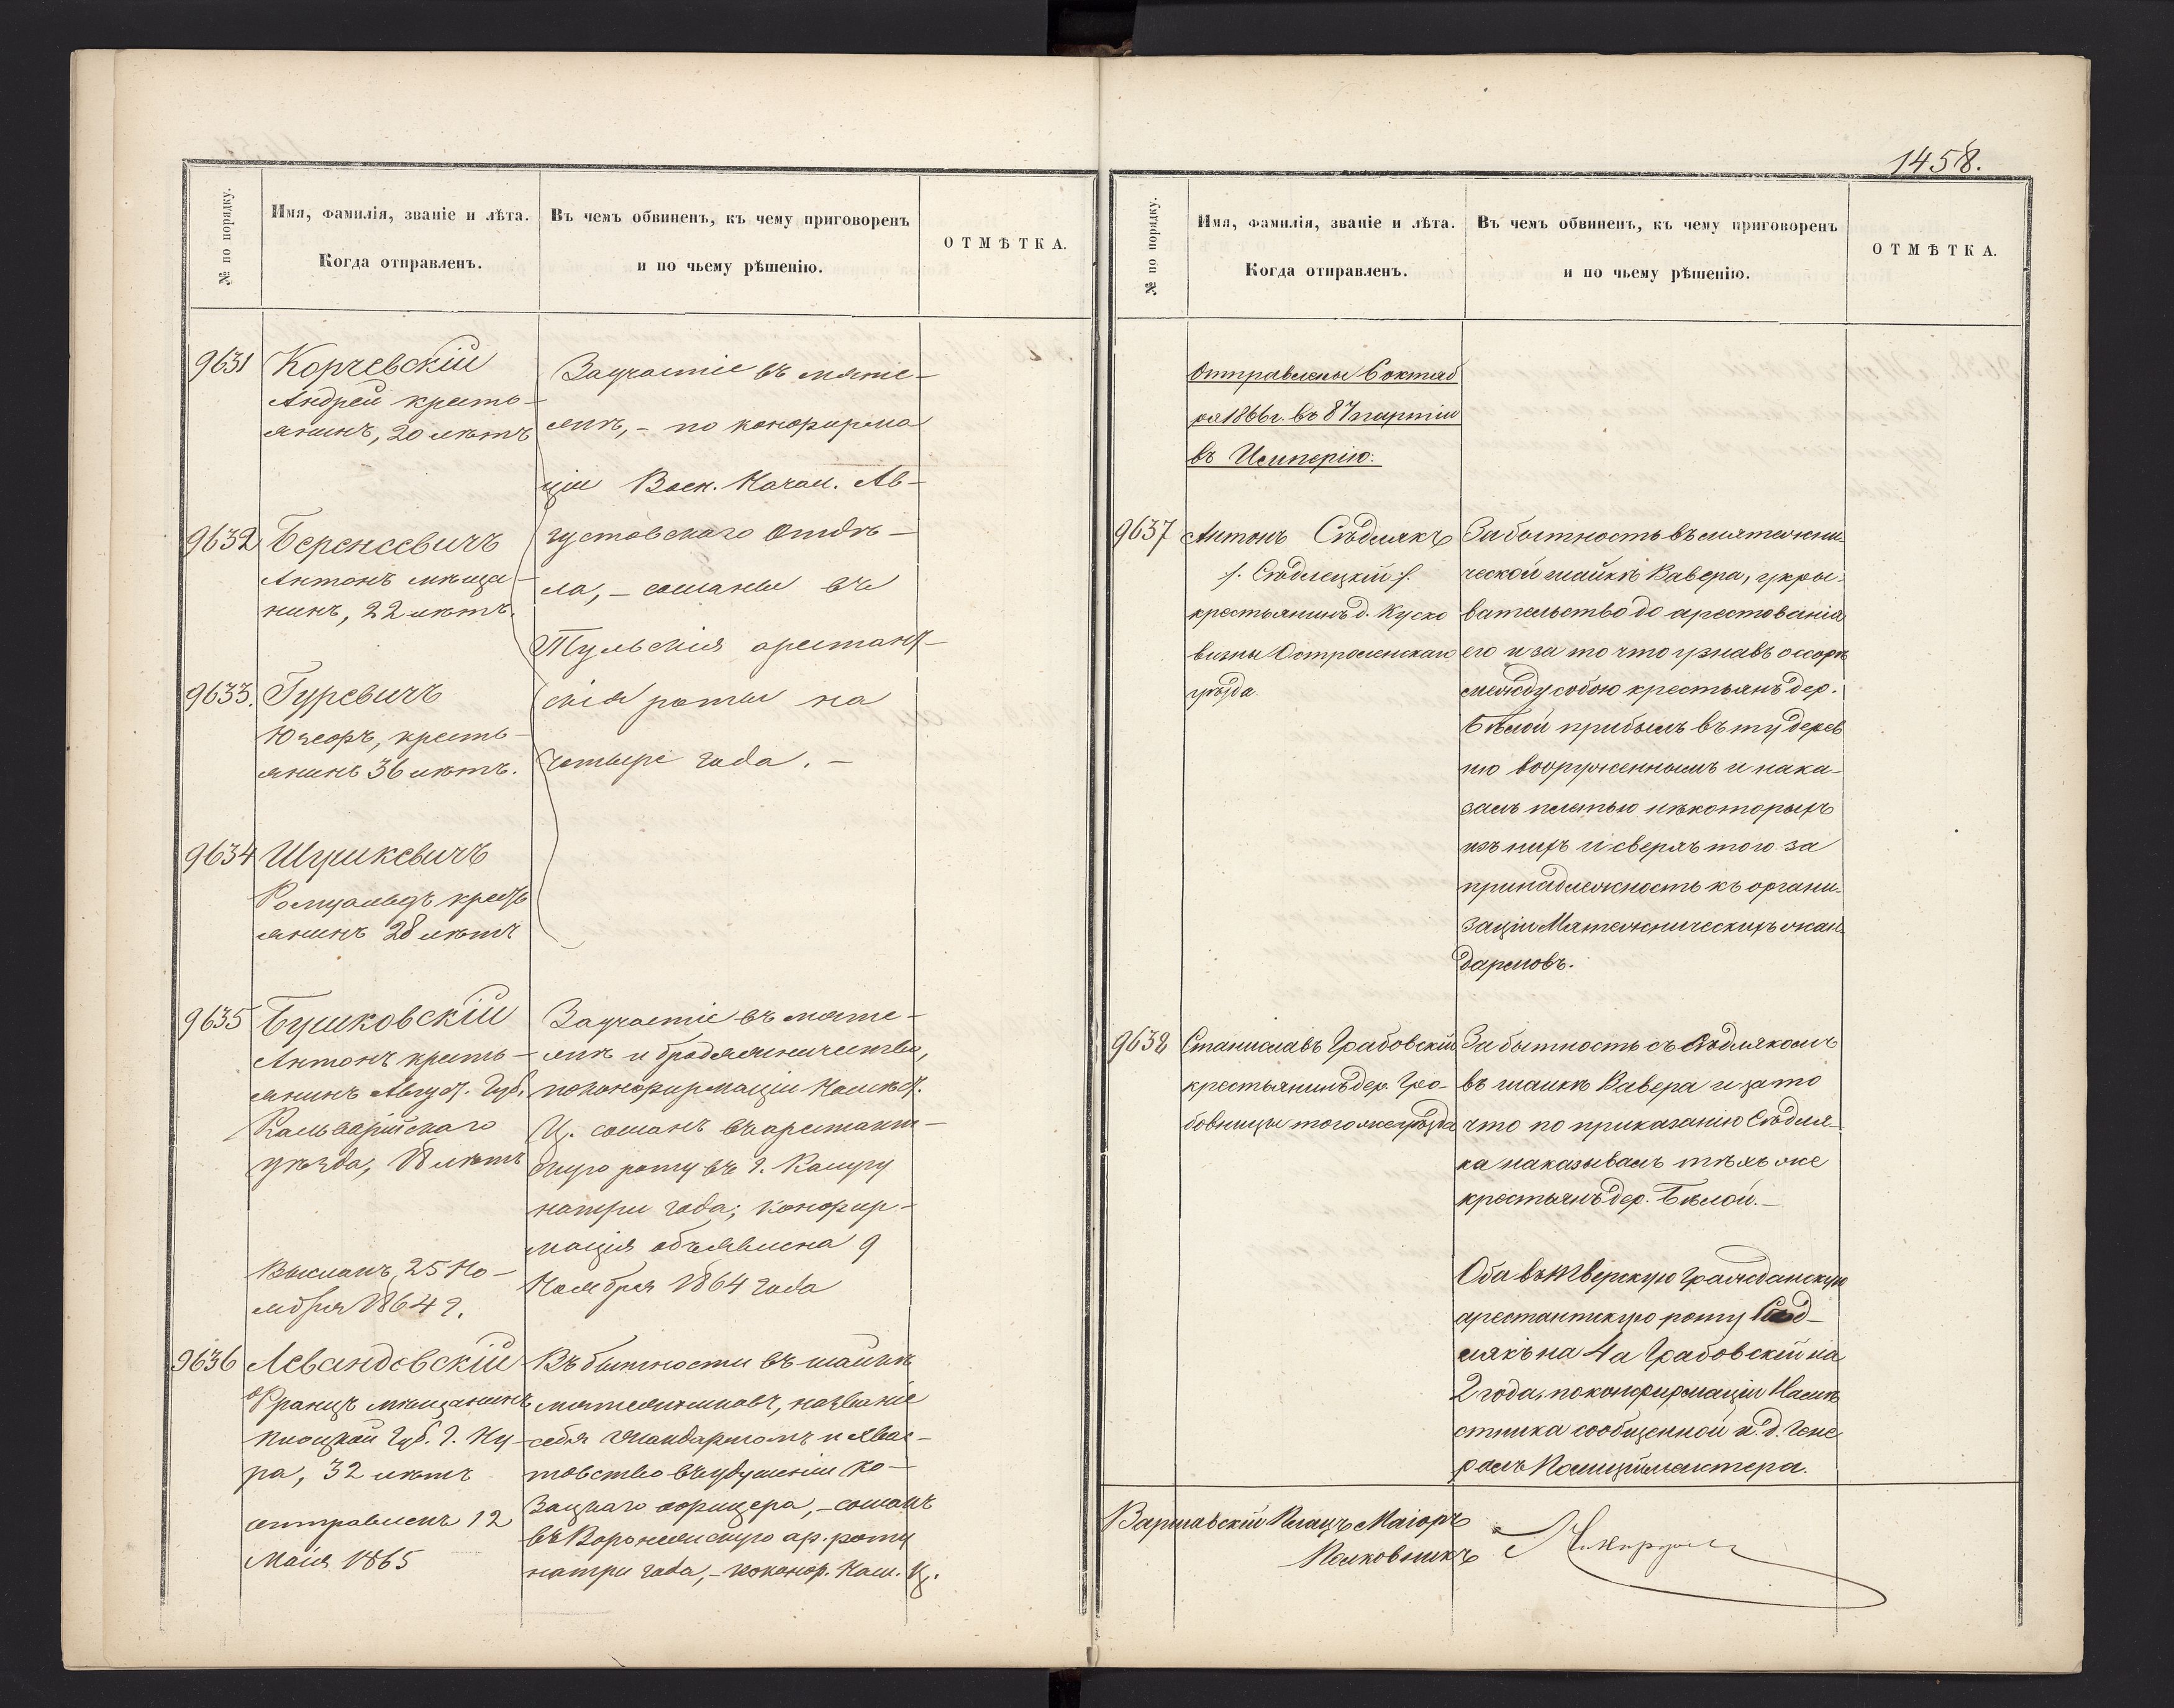 № по порядку.
Имя, фамилія, званіе и лѣта.
Когда отправленъ.
Въ чемъ обвиненъ, къ чему приговоренъ
и по чьему рѣшенію.
ОТМѢТКА.
9631
Корчевскій
Андрей кресть-
янинъ, 20 лѣтъ
9632
Беренсевичъ
Антонъ мѣща-
нинъ, 22 лѣтъ.
9633.
Гуревичъ
Юзефъ, кресть-
янинъ 36 лѣтъ.
9634
Шушкевичъ
Ромуальдъ крест
янинъ 28 лѣтъ
За участіе въ мяте-
жѣ, - по конфирма
ціи Воен. Начал. Ав-
густовскаго Отдѣ-
ла, - сосланы въ
Тульскія арестант-
скія роты на
четыре года. -
9635
Бушковскій
Антонъ кресть-
янинъ Август. Губ.
Кальварійскаго
уѣзда, 18 лѣтъ
Высланъ 25 Но-
ября 1864 г.
За участіе въ мяте-
жѣ и бродяжничество,
по конфирмаціи Намѣст.
Ц. сосланъ въ арестант-
скую роту въ г. Калугу
на три года; конфир-
мація объявлена 9
Ноября 1864 года
9636
Левандовскій
Францъ мѣщанинъ
Плоцкой Губ. г. Ну-
ра, 32 лѣтъ
отправленъ 12
Маія 1865
Въ бытности въ шайкѣ
мятежниковъ, названіе
себя жандармомъ и хвас-
товство въ удушеніи ка-
зацкаго офицера, - сосланъ
въ Воронежскую ар. роту
на три года, - по конф. Нам. Ц.
1458.
№ по порядку.
Имя, фамилія, званіе и лѣта.
Когда отправленъ.
Въ чемъ обвиненъ, къ чему приговоренъ
и по чьему рѣшенію.
ОТМѢТКА.
Отправлены 6 октяб
ря 1866 г. въ 87 партіи
въ Имперію:
9637
Антонъ Сѣдлякъ
/. Сѣдлецкій /.
крестьянинъ д. Куско
визны Остроленскаго
уѣзда.
За бытность въ мятежни-
ческой шайкѣ Вавера, укры-
вательство до арестованія
его и за то что узнавъ о ссорѣ
между собою крестьянъ дер.
Бѣлой прибылъ въ ту дерев
ню вооруженнымъ и нака-
залъ плетью нѣкоторыхъ
изъ нихъ и сверхъ того за
принадлежность къ органи-
заціи Мятежническихъ жан
дармовъ.
9638
Станиславъ Грабовскій
крестьянинъ дер. Гро-
бовницы того же уѣзда
За бытность съ Сѣдлякомъ
въ шайкѣ Вавера и за то
что по приказанію Сѣдля-
ка наказывалъ тѣхъ же
крестьянъ дер. Бѣлой. -
Оба въ Тверскую Гражданскую
арестантскую роту Сѣд-
лякъ на 4 а Грабовскій на
2 года, по конфирмаціи Намѣ
стника сообщенной и. д. Гене
ралъ Полиціймейстера.
Варшавскій Плацъ Маіоръ
Полковникъ